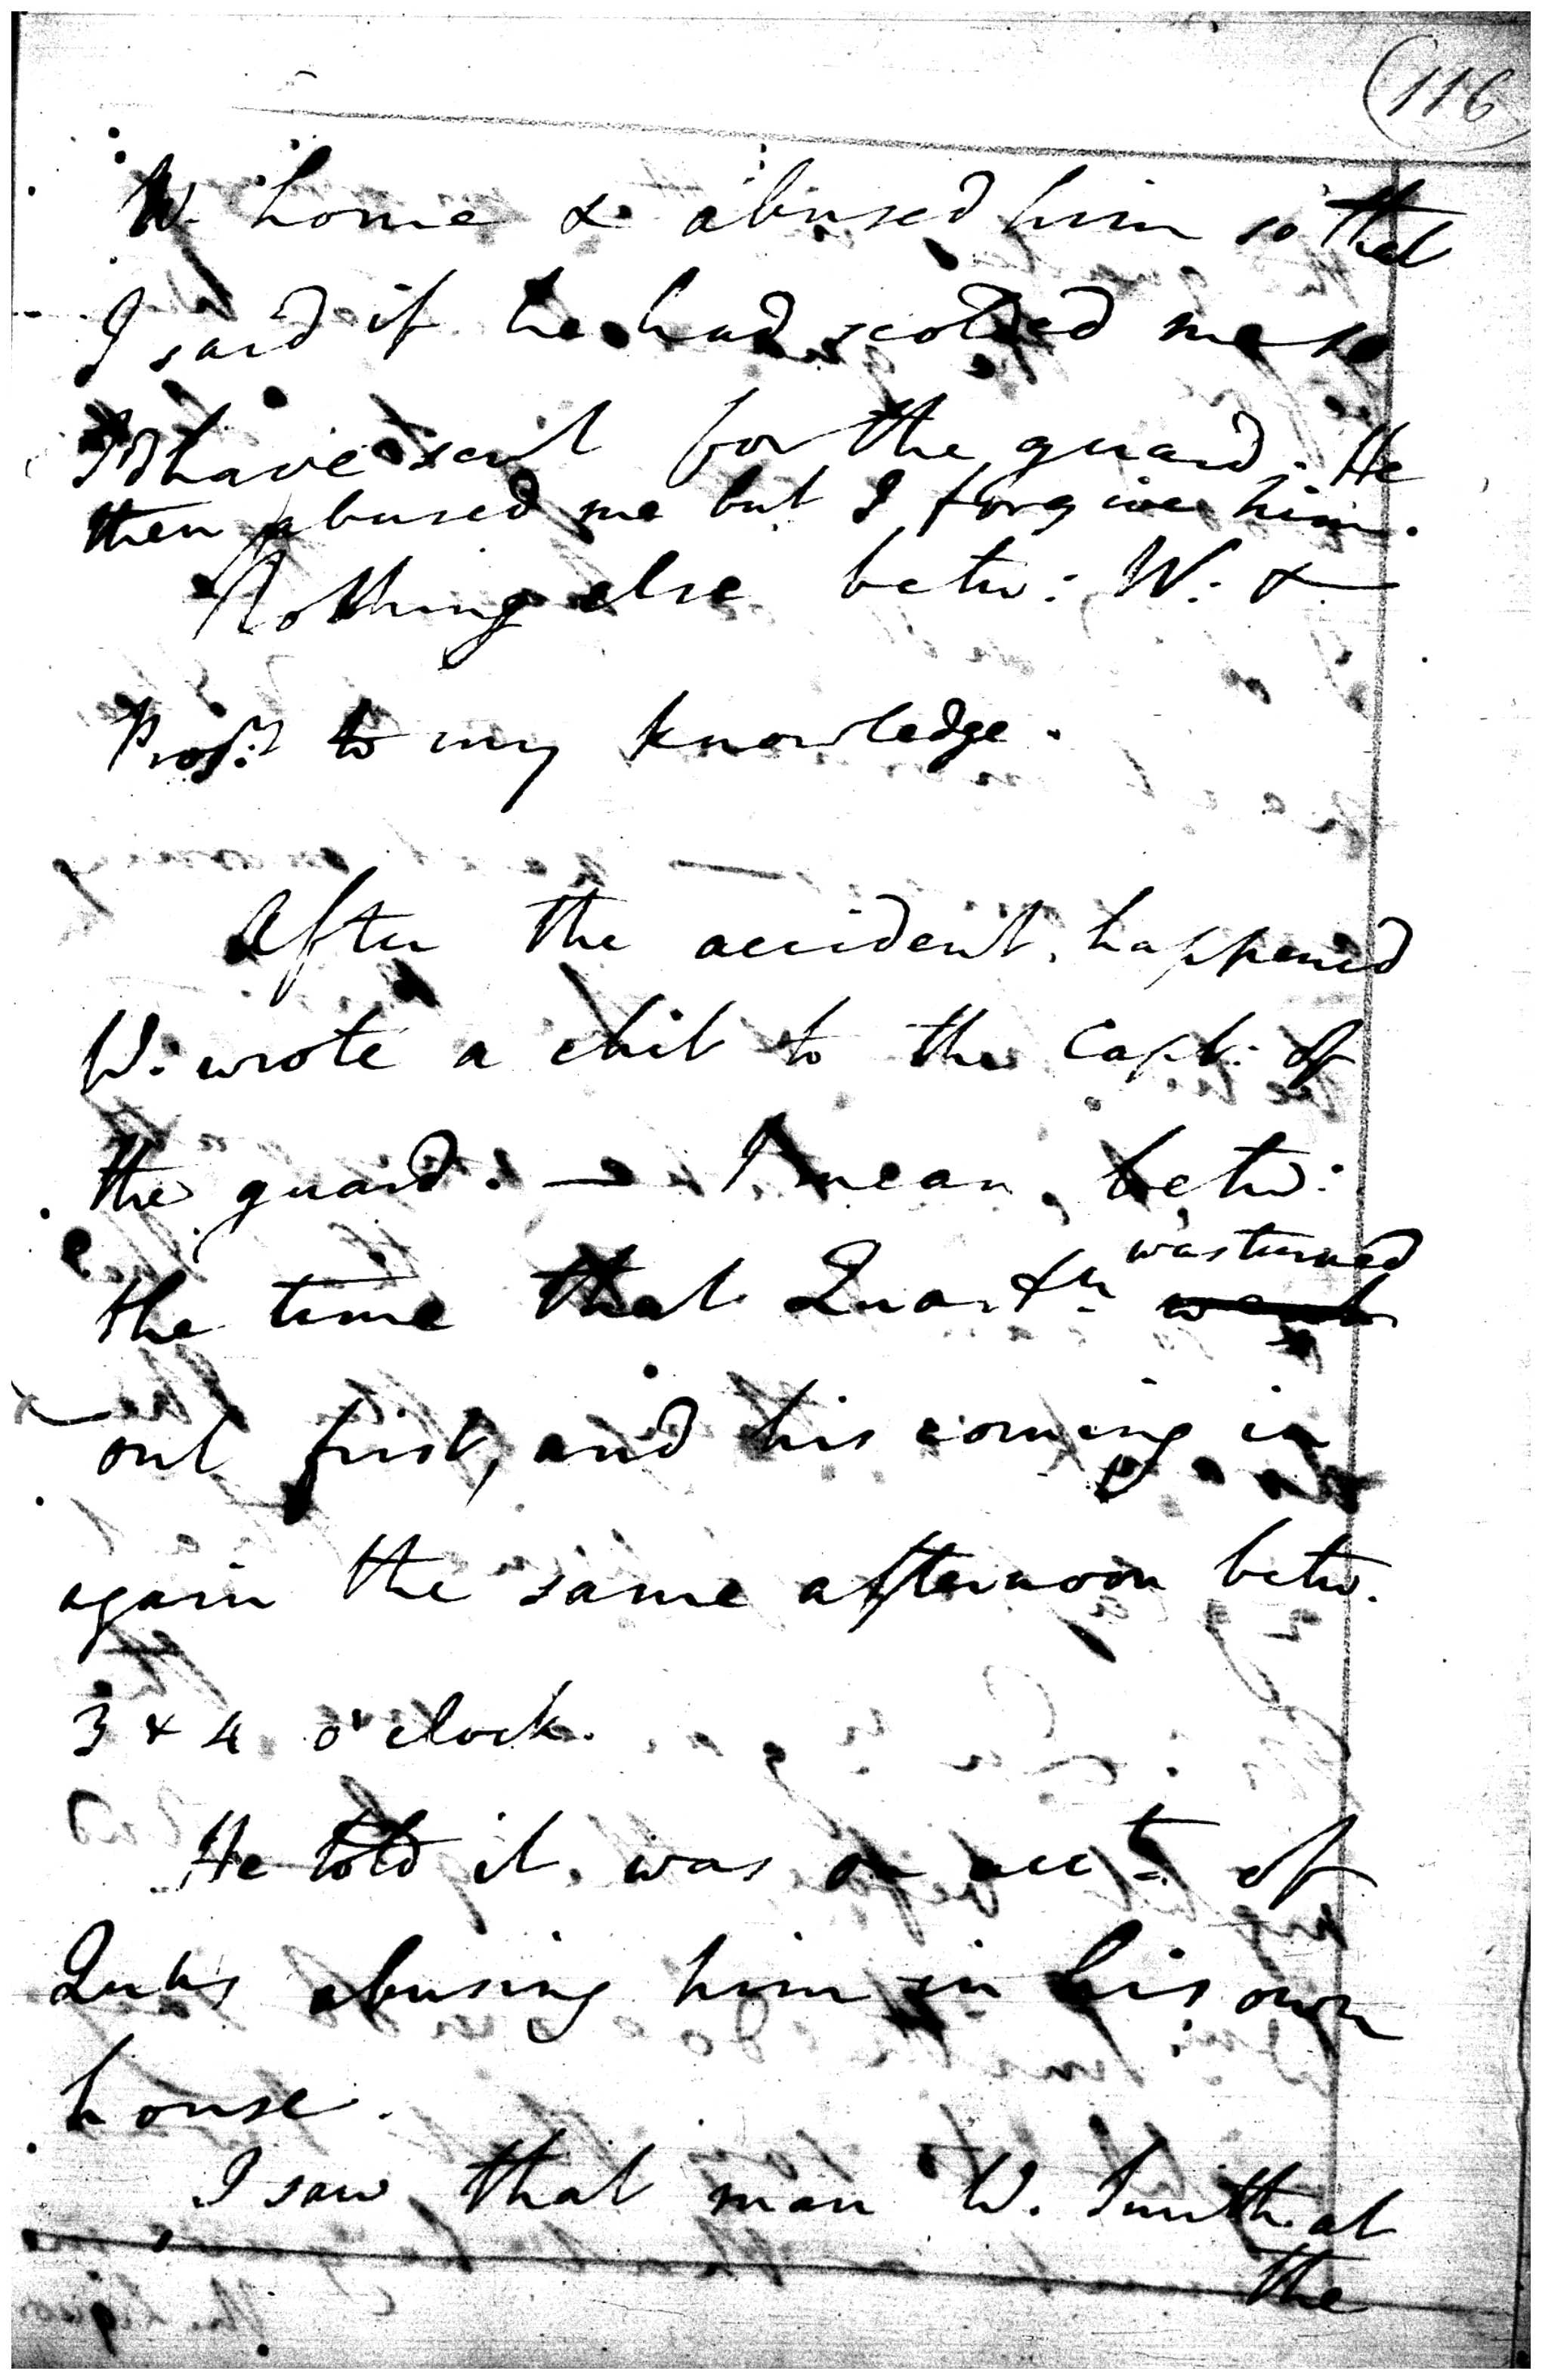 116
W. home & abused him so that
I said if he had scolded me so
I'd have sent for the guard. He
then abused me but I forgive him.
Nothing else betw: W. &
Pros:r to my knowledge.
After the accident happened
W. wrote a chit to the Capt: of
the guard. — I mean, betw:
was turned
the time that Quar &
out first, and his coming in
again the same afternoon betw.
3 & 4 o'clock.
He told it was on acct. of
abusing him in his own
house.
I saw that man W. Smith at
the